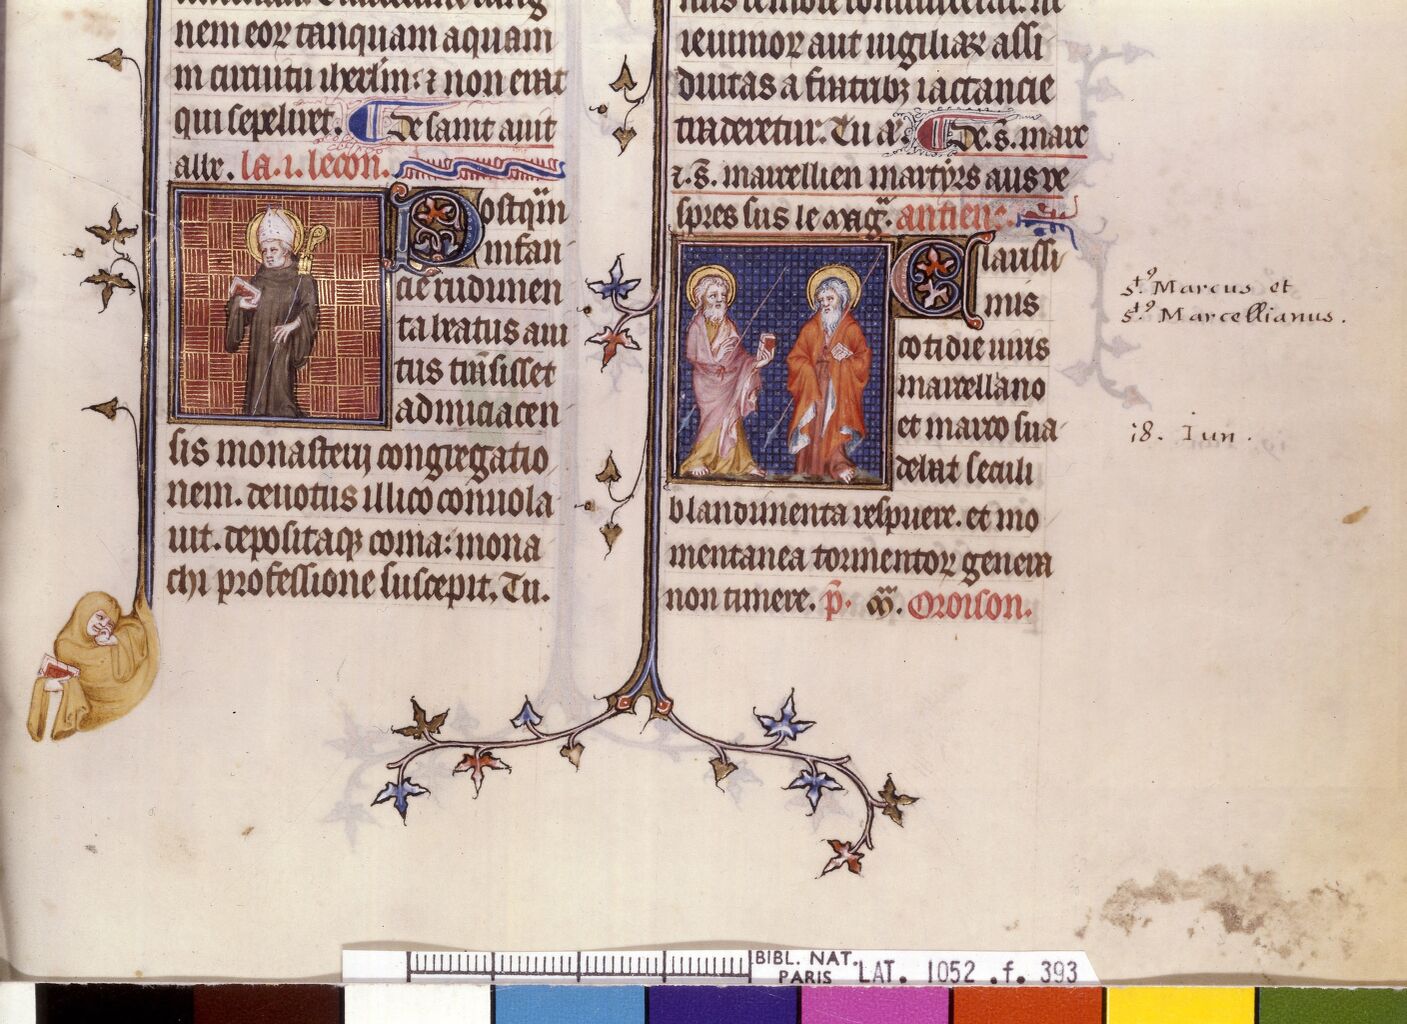 nem eor tanquam aquam
in circuitu iherlm: ⁊ non erat
qui sepeliret. De saint auit
abbe. la .i. lecon.
Postq̄m
infan
cie rudimen
ta beatus aui
tus tn̄sisset
ad miciacen
sis monasterij congregatio
nem. deuotus illico conuola
uit. depositaq; coma: mona
chi professione suscepit. Tu.
ieiunior aut uigiliar assi
duitas a fratrib; iactancie
traderetur. Tu a. De .s. marc
⁊ .s. marcellien martyrs aus ve
spres sus le mag̃. antiene.
Clarissi
mis
cotidie uiris
marcellano
et marco sua
debat seculi
blandimenta respuere. et mo
mentanea tormentor genera
non timere. p̃. Oroison.
Sᵗ⁹. Marcus et
Sᵗ⁹. Marcellianus.
18. Iun.
BIBL. NAT.
PARIS LAT. 1052 .f. 393